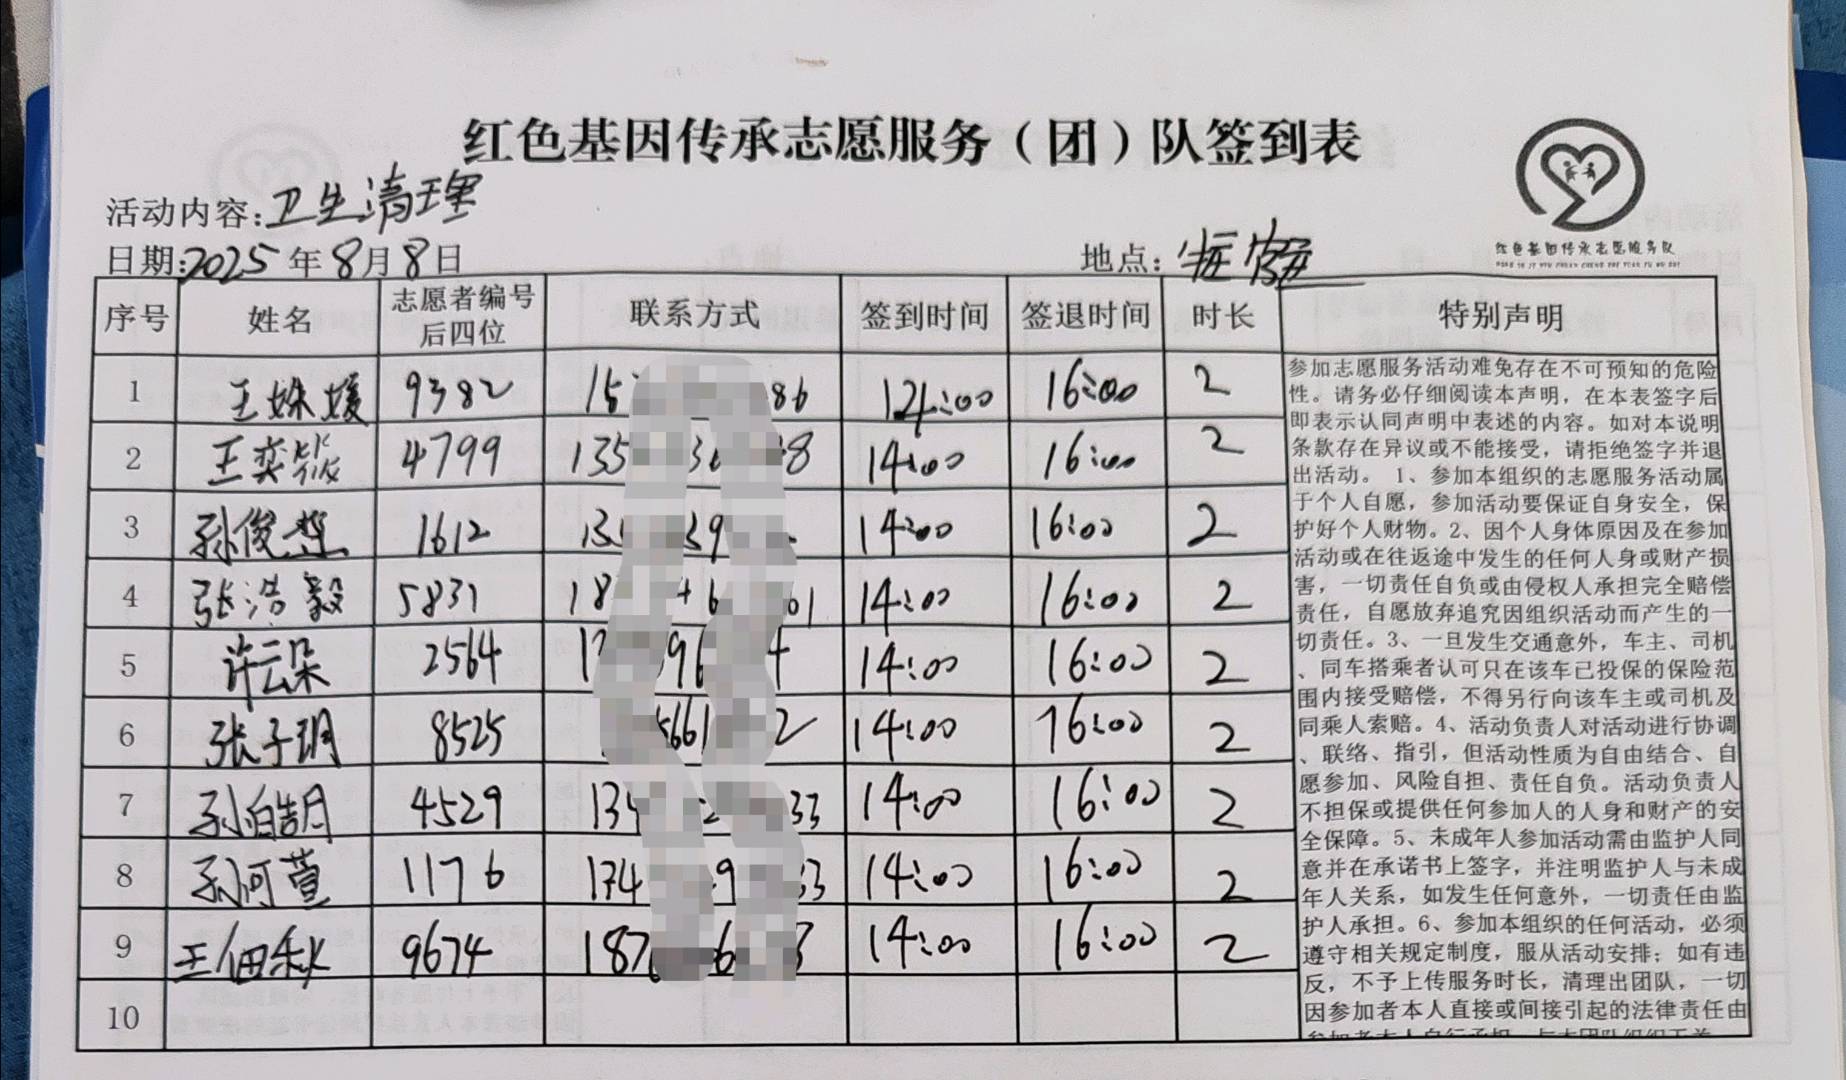 红色基因传承志愿服务（团）队签到表
活动内容:卫生清理
日期:2025年8月8日 地点:
红色基因传承志愿服务队
序号 姓名 志愿者编号后四位 联系方式 签到时间 签退时间 时长 特别声明
1 王姝媛 9382 15 86 14:00 16:00 2
2 王奕筱 4799 135 8 14:00 16:00 2
3 孙俊 1612 39 14:00 16:00 2
4 张浩毅 5831 18 01 14:00 16:00 2
5 许云朵 2564 96 14:00 16:00 2
6 张子玥 8525 5661 2 14:00 16:00 2
7 孙皓玥 4529 13 33 14:00 16:00 2
8 孙何萱 1176 174 9 33 14:00 16:00 2
9 王佃秋 9674 187 6 3 14:00 16:00 2
10
参加志愿服务活动难免存在不可预知的危险
性。请务必仔细阅读本声明，在本表签字后
即表示认同声明中表述的内容。如对本说明
条款存在异议或不能接受，请拒绝签字并退
出活动。 1、参加本组织的志愿服务活动属
于个人自愿，参加活动要保证自身安全，保
护好个人财物。2、因个人身体原因及在参加
活动或在往返途中发生的任何人身或财产损
害，一切责任自负或由侵权人承担完全赔偿
责任，自愿放弃追究因组织活动而产生的一
切责任。3、一旦发生交通意外，车主、司机
、同车搭乘者认可只在该车已投保的保险范
围内接受赔偿，不得另行向该车主或司机及
同乘人索赔。4、活动负责人对活动进行协调
、联络、指引，但活动性质为自由结合、自
愿参加、风险自担、责任自负。活动负责人
不担保或提供任何参加人的人身和财产的安
全保障。5、未成年人参加活动需由监护人同
意并在承诺书上签字，并注明监护人与未成
年人关系，如发生任何意外，一切责任由监
护人承担。6、参加本组织的任何活动，必须
遵守相关规定制度，服从活动安排；如有违
反，不予上传服务时长，清理出团队，一切
因参加者本人直接或间接引起的法律责任由